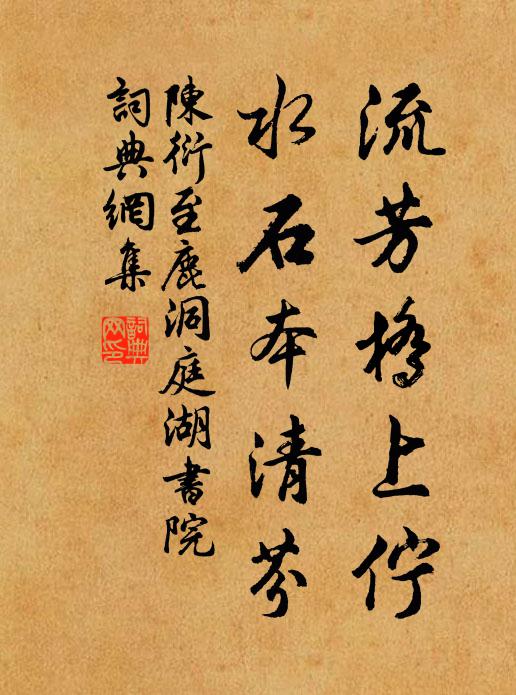 流芳橋上佇
水石本清芬
陳衍至鹿洞庭湖書院
詞典網集
詞典網印